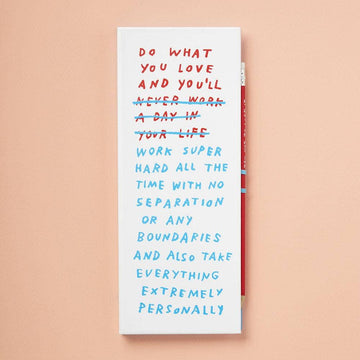 DO WHAT
YOU LOVE
AND YOU'LL
NEVER WORK
A DAY IN
YOUR LIFE
WORK SUPER
HARD ALL THE
TIME WITH NO
SEPARATION
OR ANY
BOUNDARIES
AND ALSO TAKE
EVERYTHING
EXTREMELY
PERSONALLY